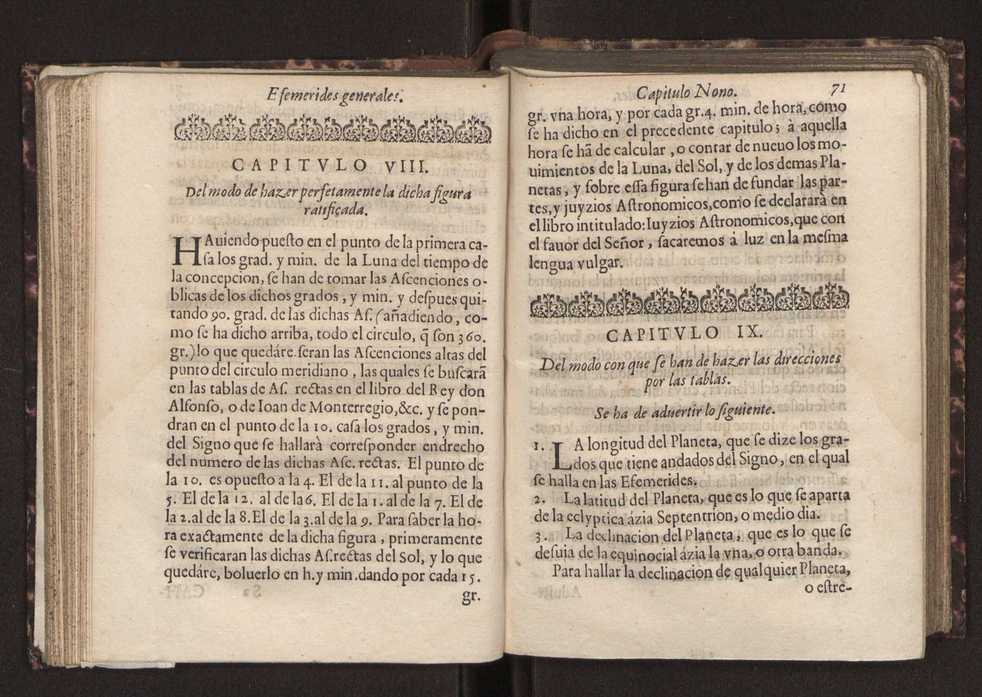 Efemerides generales.
CAPITVLO VIII.
Del modo de hazer perfetamente la dicha figura
ratificada.
HAuiendo puesto en el punto de la primera ca-
sa los grad. y min. de la Luna del tiempo de
la concepcion, se han de tomar las Ascenciones o-
blicas de los dichos grados, y min. y despues qui-
tando 90. grad. de las dichas As. (añadiendo, co-
mo se ha dicho arriba, todo el circulo, q̃ son 360.
gr.) lo que quedáre seran las Ascenciones altas del
punto del circulo meridiano, las quales se buscarã
en las tablas de As. rectas en el libro del Rey don
Alfonso, o de Ioan de Monterregio, &c. y se pon-
dran en el punto de la 10. casa los grados, y min.
del Signo que se hallarà corresponder endrecho
del numero de las dichas Asc. rectas. El punto de
la 10. es opuesto a la 4. El de la 11. al punto de la
5. El de la 12. al de la 6. El de la 1. al de la 7. El de
la 2. al de la 8. El de la 3. al de la 9. Para saber la ho-
ra exactamente de la dicha figura, primeramente
se verificaran las dichas As. rectas del Sol, y lo que
quedáre, boluerlo en h. y min. dando por cada 15.
gr.
Capitulo Nono. 71
gr. vna hora, y por cada gr. 4. min. de hora, como
se ha dicho en el precedente capitulo; à aquella
hora se hã de calcular, o contar de nueuo los mo-
uimientos de la Luna, del Sol, y de los demas Pla-
netas, y sobre essa figura se han de fundar las par-
tes, y juyzios Astronomicos, como se declararà en
el libro intitulado: Iuyzios Astronomicos, que con
el fauor del Señor, sacaremos à luz en la mesma
lengua vulgar.
CAPITVLO IX.
Del modo con que se han de hazer las direcciones
por las tablas.
Se ha de aduertir lo siguiente.
1. LA longitud del Planeta, que se dize los gra-
dos que tiene andados del Signo, en el qual
se halla en las Efemerides.
2. La latitud del Planeta, que es lo que se aparta
de la eclyptica ázia Septentrion, o medio dia.
3. La declinacion del Planeta, que es lo que se
desuia de la equinocial ázia la vna, o otra banda.
Para hallar la declinacion de qualquier Planeta,
o estre-